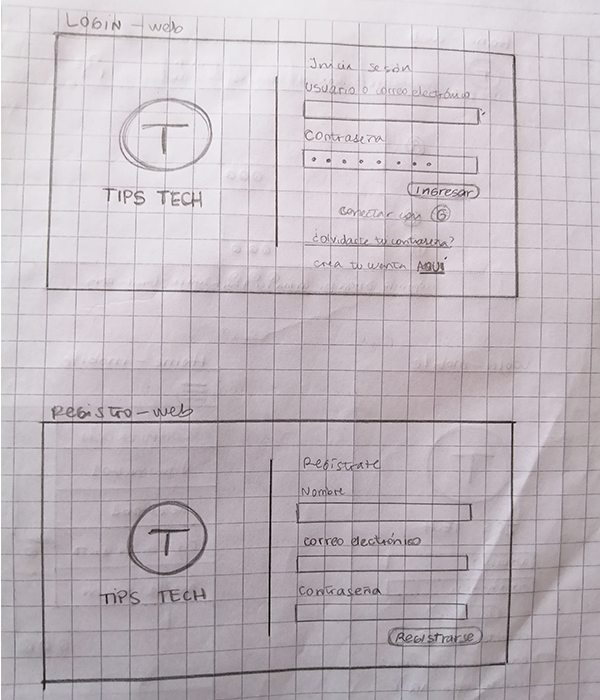 LOGIN - web
Inicia sesión
Usuario o correo electrónico
Contraseña
T
TIPS TECH
Ingresar
Conectar con G
¿olvidaste tu contraseña?
crea tu cuenta AQUÍ
Registro - web
Regístrate
Nombre
correo electrónico
T
TIPS TECH
Contraseña
Registrarse